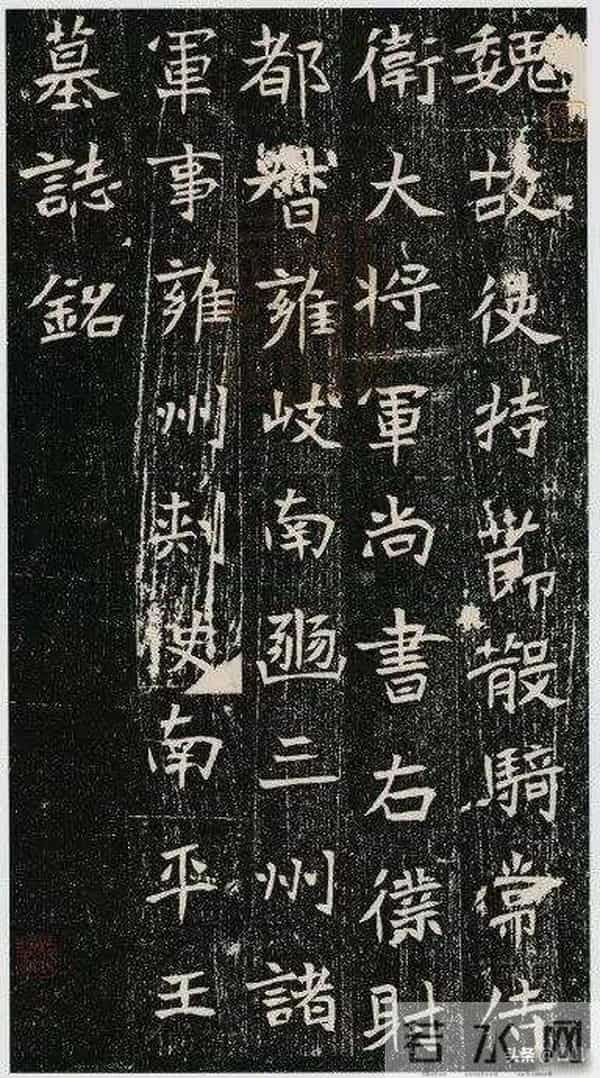 魏故使持節散騎常侍
衛大将軍尚書右僕射
都督雍岐南豳三州諸
軍事雍州刾史南平王
墓誌銘
若水网
头条 @